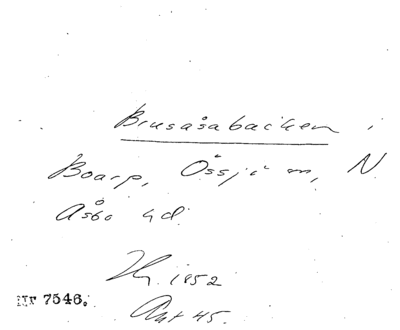 Brusåsabacken i
Boarp, Össjö sn, N
Åsbo hd.
Hr. 1852
Ant 45.
Nr 7546.